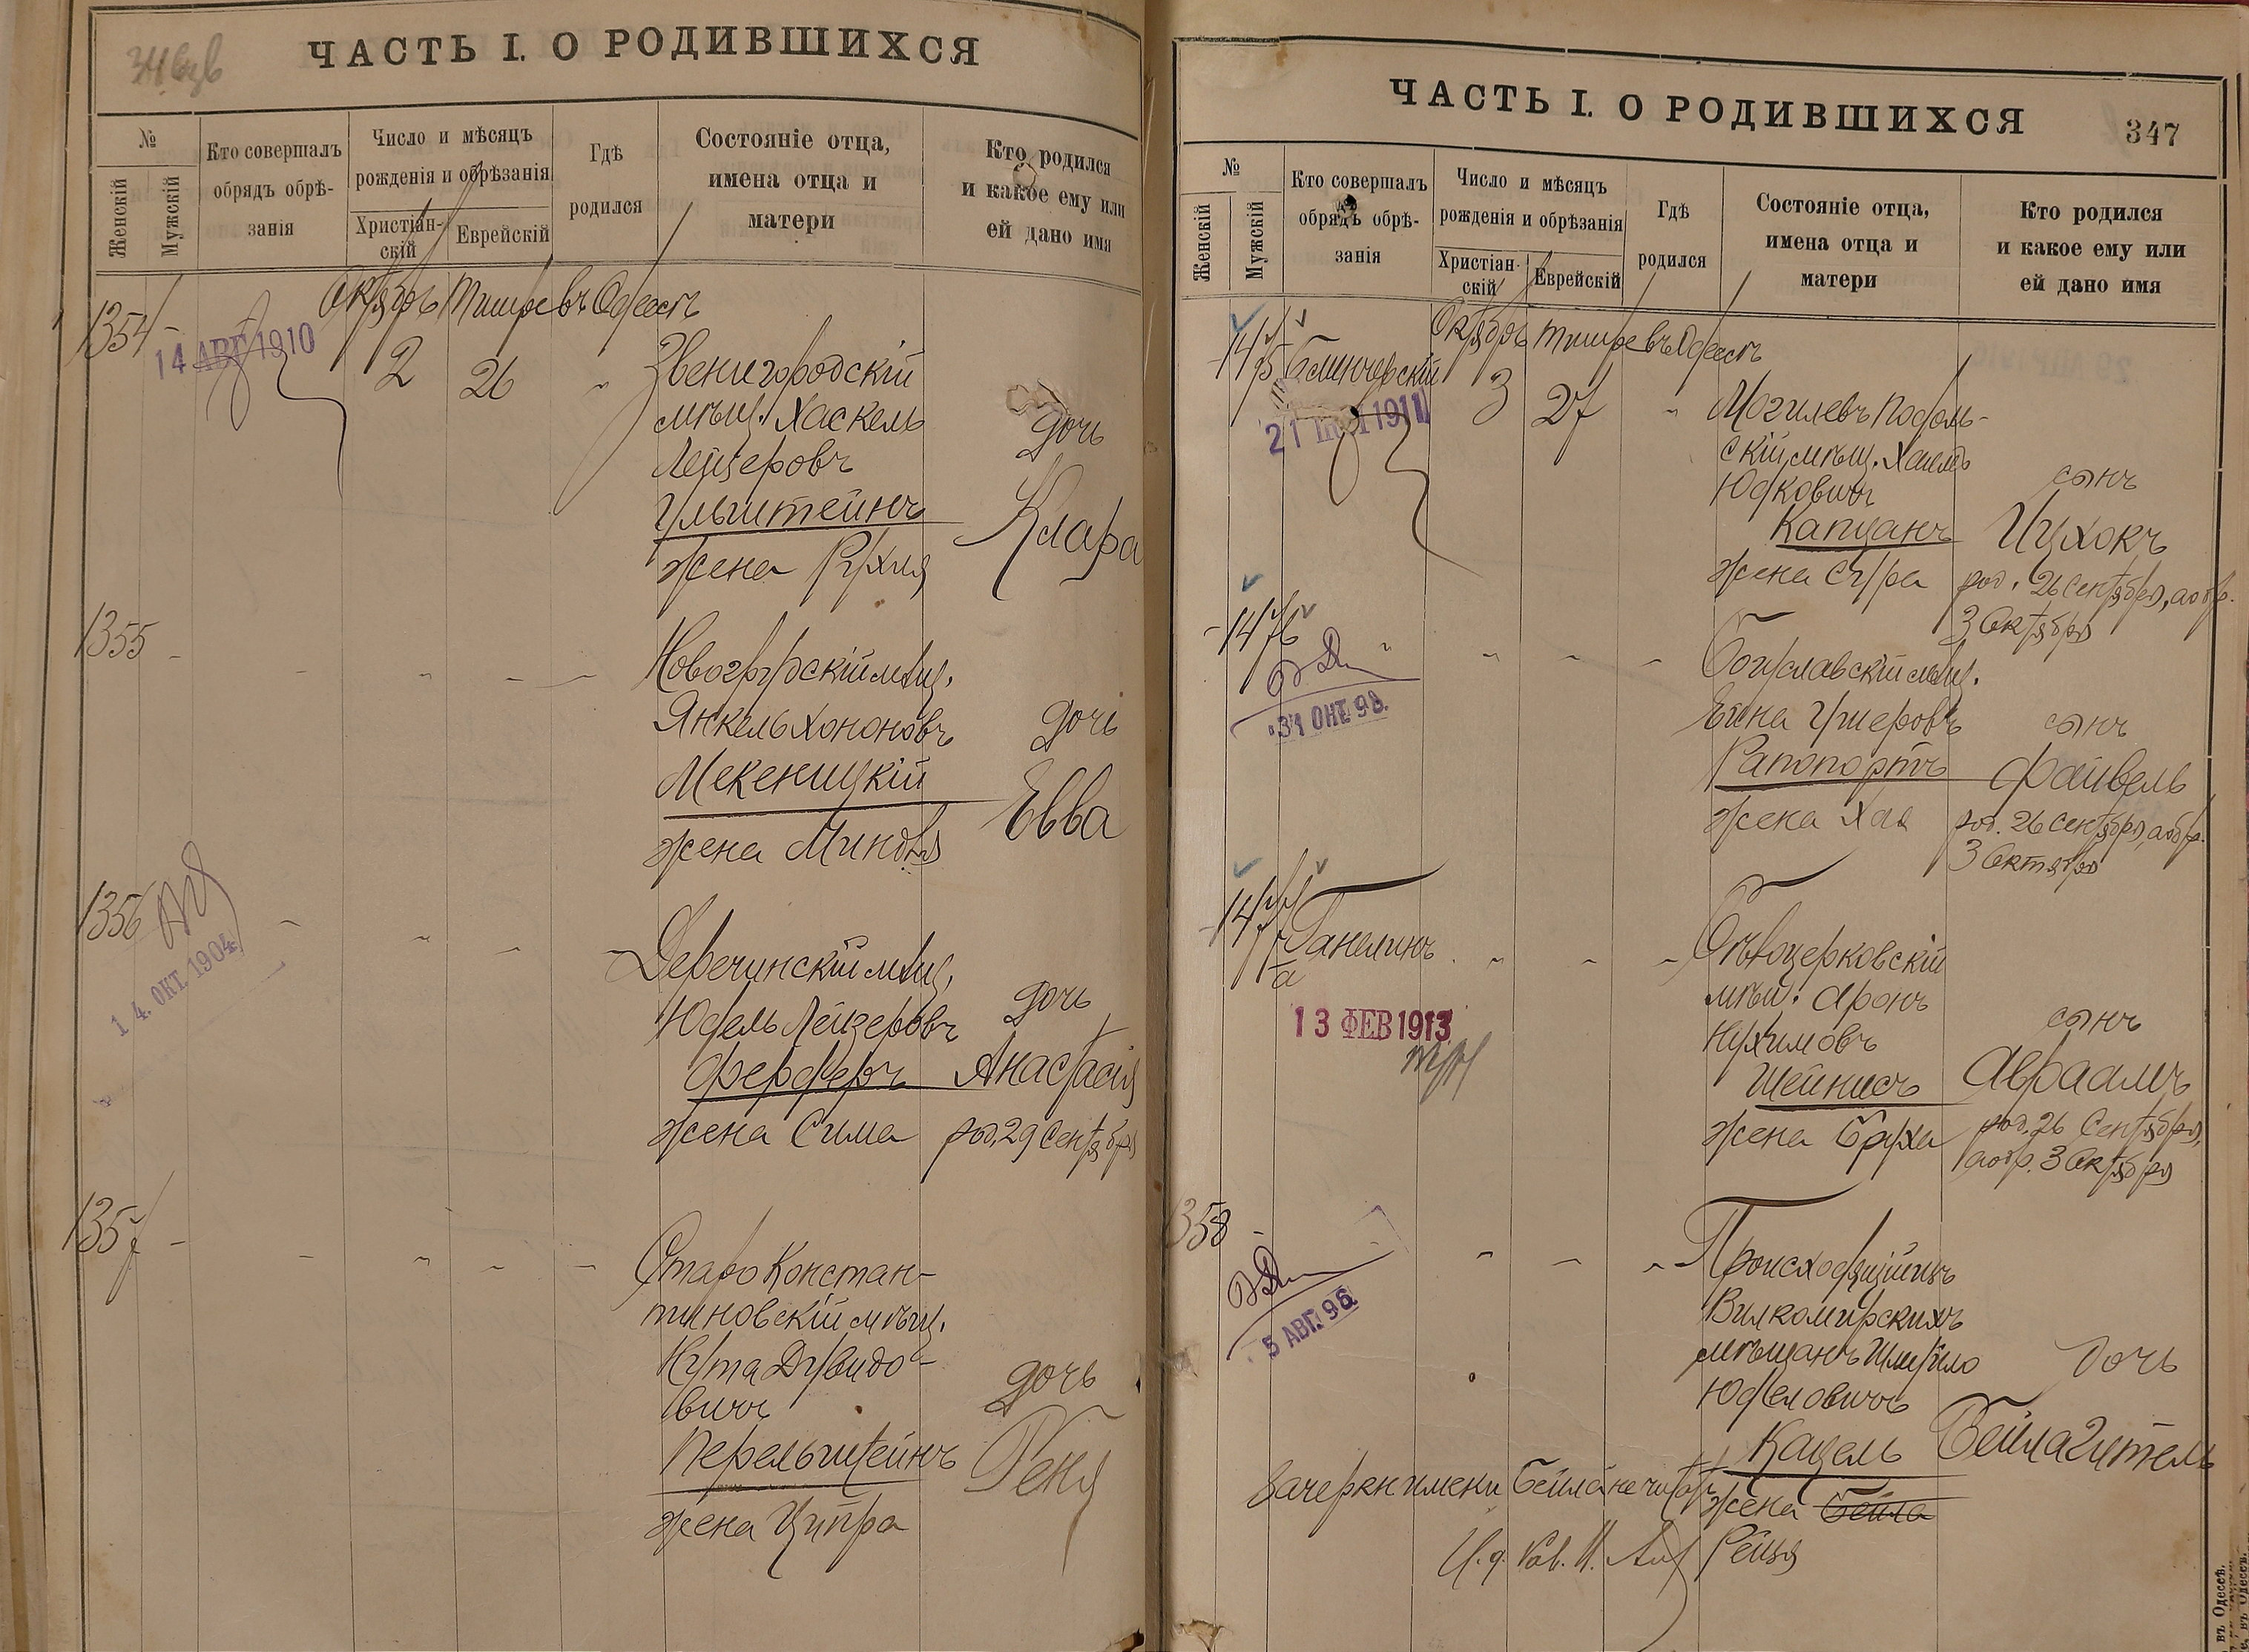 ЧАСТЬ I. О РОДИВШИХСЯ
№
Женскій
Мужскій
Кто совершалъ
обрядъ обрѣ-
занія
Число и мѣсяцъ
рожденія и обрѣзанія
Христіан-
скій
Еврейскій
Гдѣ
родился
Состояніе отца,
имена отца и
матери
Кто родился
и какое ему или
ей дано имя
Октябрь Тишре въ Одессѣ
1354 -
14 АВГ 1910
2 26 "
Звенигородскій
мѣщ. Хаскель
Лейзеровъ
Ульштейнъ
жена Рухля
дочь
Клара
1355 -
Новогрудскій мѣщ.
Янкель Хононовъ
Мекеницкій
жена Миндля
дочь
Евва
1356
14. ОКТ. 1904
Деречинскій мѣщ.
Юдель Лейзеровъ
Ферферъ
жена Сима
дочь
Анастасія
род. 29 Сентября
1357 -
Старо Констан-
тиновскій мѣщ.
Нута Дувидо-
вичъ
Перельштейнъ
жена Ципра
дочь
Реня
ЧАСТЬ I. О РОДИВШИХСЯ
347
№
Женскій
Мужскій
Кто совершалъ
обрядъ обрѣ-
занія
Число и мѣсяцъ
рожденія и обрѣзанія
Христіан-
скій
Еврейскій
Гдѣ
родился
Состояніе отца,
имена отца и
матери
Кто родился
и какое ему или
ей дано имя
Октябрь Тишре въ Одессѣ
- 1475 Блинчевскій
21 1911
3 27 "
Могилевъ Подоль-
скій мѣщ. Хаимъ
Юдковичъ
Капцанъ
жена Сура
сынъ
Ицхокъ
род. 26 Сентября, а обр.
3 Октября
- 1476 "
31 ОКТ. 98.
Богуславскій мѣщ.
Ейна Ушеровъ
Рапопортъ
жена Хая
сынъ
Файвель
род. 26 Сентября, а обр.
3 Октября
- 1477 Ганелинъ
а
13 ФЕВ 1913
Бѣлоцерковскій
мѣщ. Аронъ
Нухимовъ
Шейнисъ
жена Бруха
сынъ
Авраамъ
род. 26 Сентября,
а обр. 3 Октября
1358 -
5 АВГ. 96
Происходящій изъ
Вилкомирскихъ
мѣщанъ Шмуйло
Юделовичъ
Кацель
жена Бейла
Рейзя
дочь
Бейла Гитель
Зачеркн имени Бейла не читать
И. д. Рав.
въ Одессѣ.